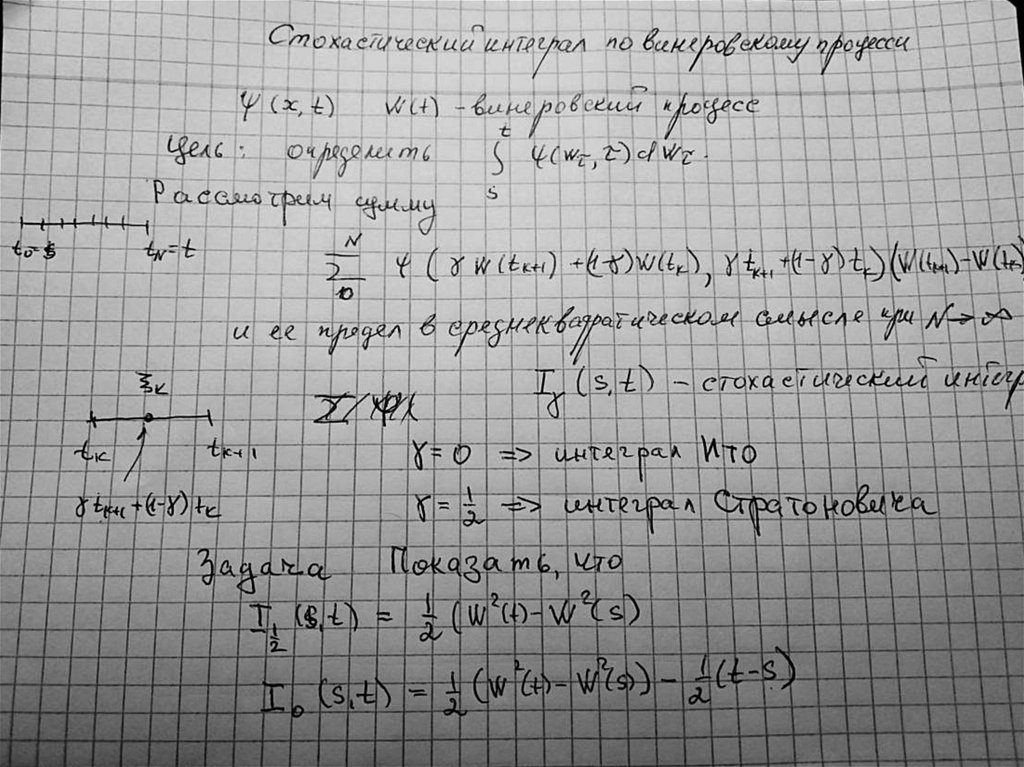 Стохастический интеграл по винеровскому процесси
ψ(x,t) W(t) - винеровский процесс
Цель: определить ∫ₛᵗ ψ(W_τ, τ) dW_τ.
Рассмотрим сумму
t₀=s t_N=t
∑₀ᴺ ψ(γ W(t_{k+1}) + (1-γ)W(t_k), γ t_{k+1} + (1-γ) t_k)(W(t_{k+1}) - W(t_k)
и ее предел в среднеквадратическом смысле при N→∞
I_γ (s,t) - стохастический интегр
ξ_k
t_k t_{k+1}
γ=0 => интеграл Ито
γ t_{k+1} + (1-γ) t_k
γ = 1/2 => интеграл Стратоновича
Задача Показать, что
I_{1/2} (s,t) = 1/2 (W²(t) - W²(s)
I₀ (s,t) = 1/2 (W²(t) - W²(s)) - 1/2 (t-s)